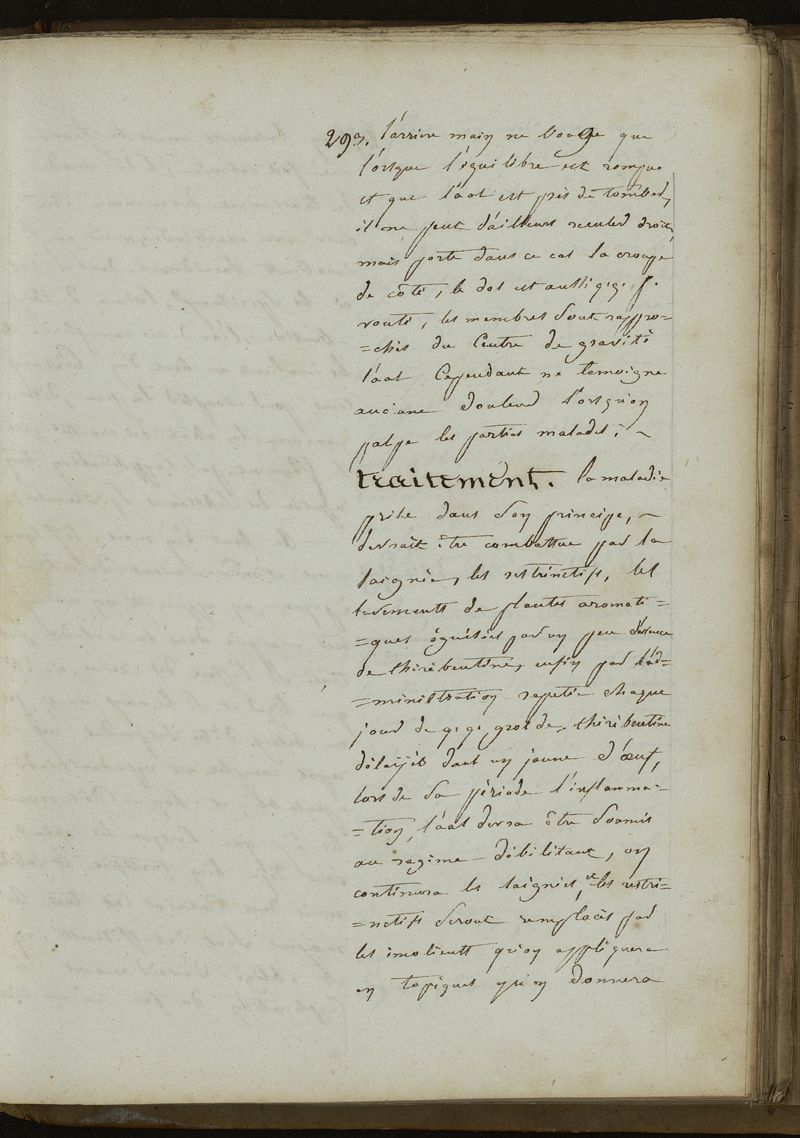 293. l'arrière main ne bouge que
l'orsque l'équilibre est rompu
et que l'aal est près de tomber,
il ne peut d'ailleurs reculer droit,
mais porte dans ce cas la croupe
de côté, le dos est aussi q.q.f.
vouté, les membres sont rappro-
=chés du Centre de gravité
l'aal Cependant ne temoigne
aucune douleur l'orsqu'on
palpe les parties malades; ~
traitement. la maladie
prise dans son principe, ~
devrait être combattue par la
saignée, les restrinctifs, les
lavements de plantes aromati=
=ques éguisées par un peu d'essence
de thérébentine, enfin par l'ad=
=ministration repetée chaque
jour de q.q. gros de thérébentine
délayés dans un jaune d'œuf,
lors de la période l'inflamma-
=tion, l'aal devra être soumis
au regime débilitant, on
continuera les saignées, et les restri-
=nctifs seront remplacés par
les imolients qu'on appliquera
en topiques qu'on donnera